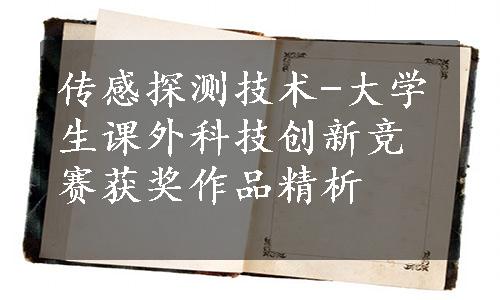 传感探测技术-大学
生课外科技创新竞
赛获奖作品精析